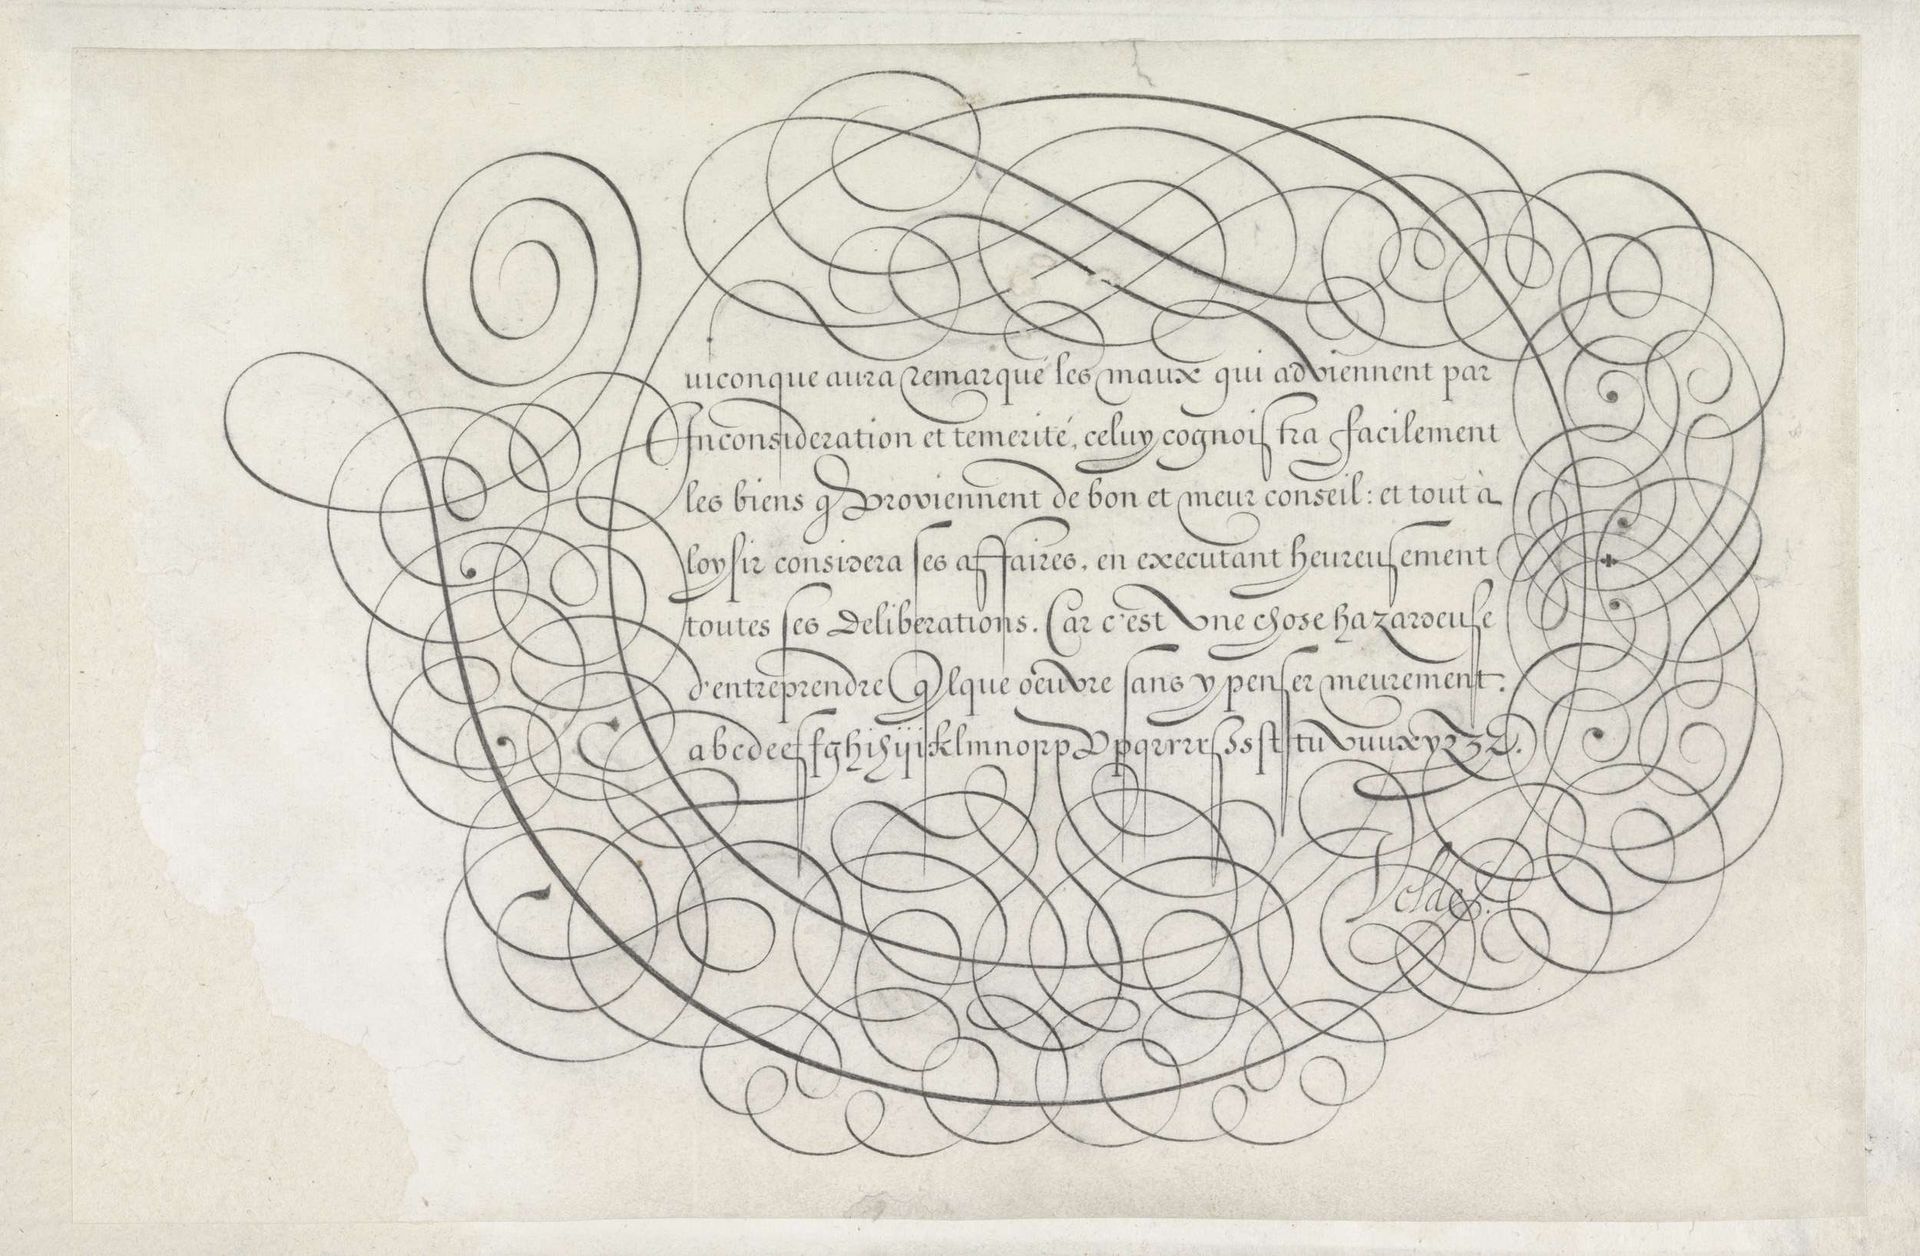 Quiconque aura remarqué les maux qui adviennent par
Inconsideration et temerité, celuy cognoistra facilement
les biens q proviennent de bon et meur conseil: et tout à
loysir considera ses affaires, en executant heureusement
toutes ses deliberations. Car c'est une chose hazardeuse
d'entreprendre qlque oeuvre sans y penser meurement.
a b c d e e f f g h i h ij i k l m n o p p p p q r r r r s s s st tu v u u x y z z z.
Velde.